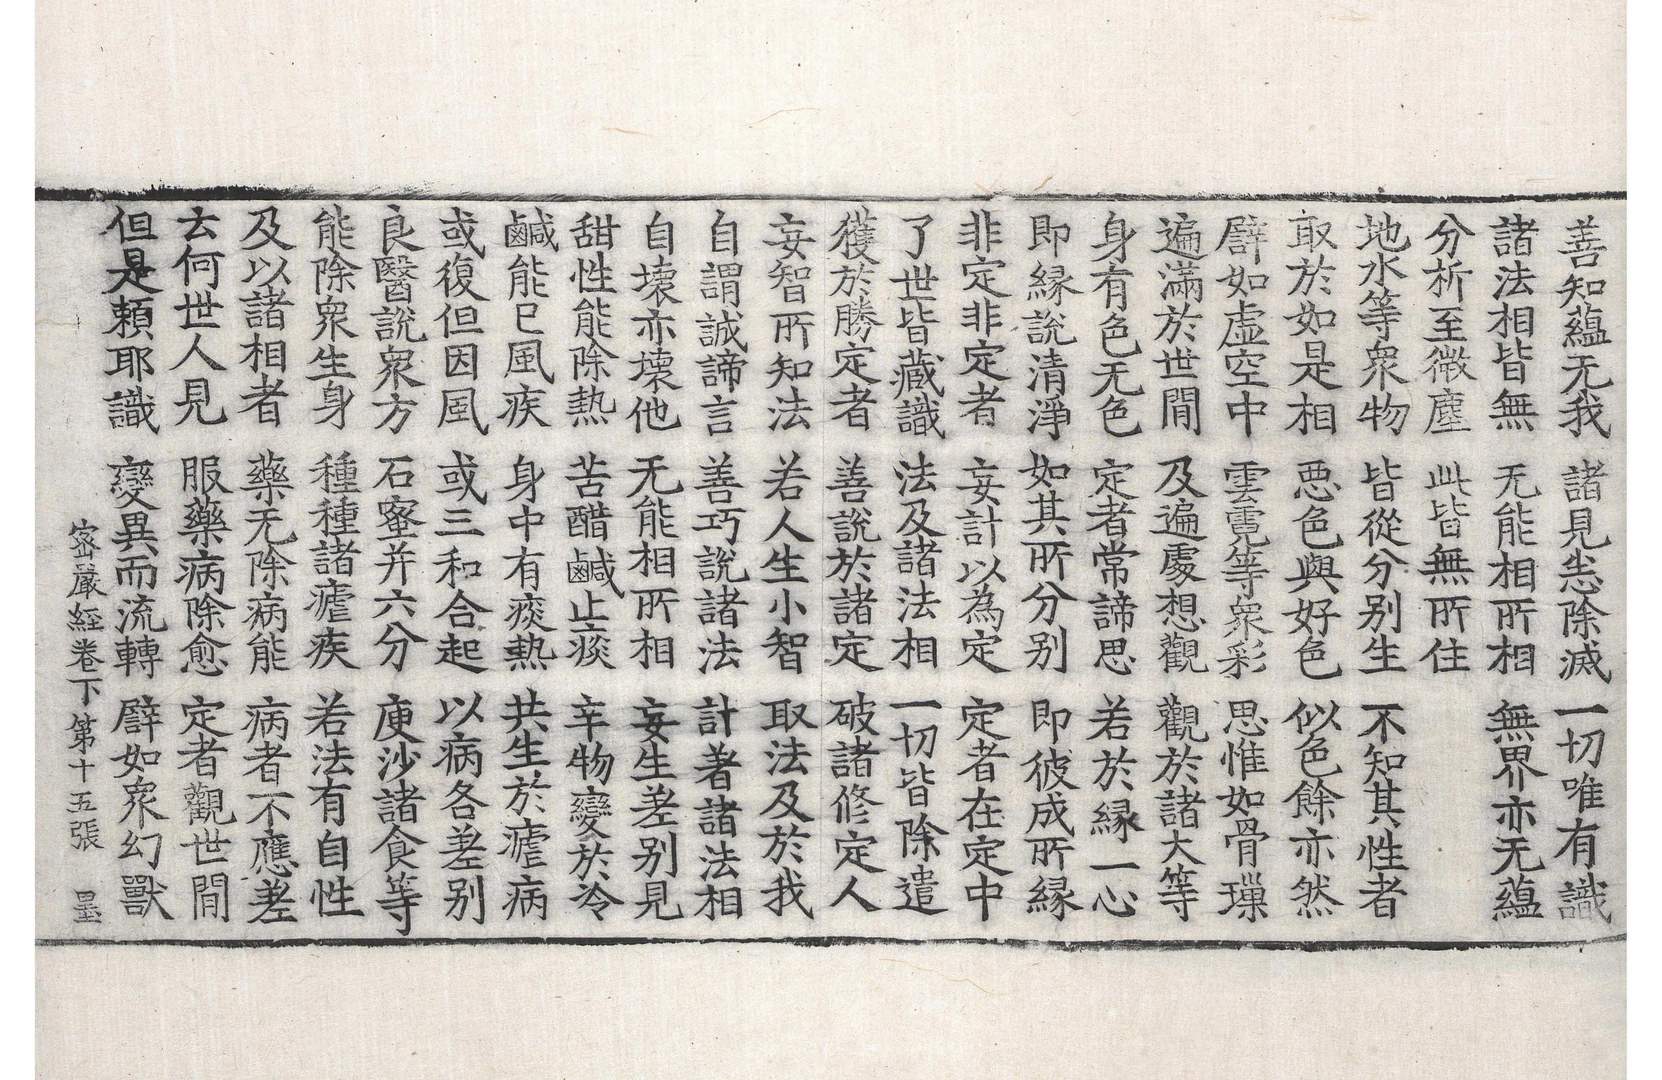 善知蘊无我 諸見悉除滅 一切唯有識
諸法相皆無 无能相所相 無界亦无蘊
分析至微塵 此皆無所住
地水等衆物 皆從分別生 不知其性者
取於如是相 惡色與好色 似色餘亦然
譬如虛空中 雲霓等衆彩 思惟如骨璅
遍滿於世間 及遍處想觀 觀於諸大等
身有色无色 定者常諦思 若於縁一心
即縁說清淨 如其所分別 即彼成所縁
非定非定者 妄計以為定 定者在定中
了世皆藏識 法及諸法相 一切皆除遣
獲於勝定者 善說於諸定 破諸修定人
妄智所知法 若人生小智 取法及於我
自謂誠諦言 善巧說諸法 計著諸法相
自壞亦壞他 无能相所相 妄生差別見
甜性能除熱 苦醋鹹止痰 辛物變於冷
鹹能已風疾 身中有痰熱 共生於瘧病
或復但因風 或三和合起 以病各差別
良醫說衆方 石蜜并六分 庾沙諸食等
能除衆生身 種種諸瘧疾 若法有自性
及以諸相者 藥无除病能 病者不應差
云何世人見 服藥病除愈 定者觀世間
但是賴耶識 變異而流轉 譬如衆幻獸
密嚴經卷下 第十五張 墨